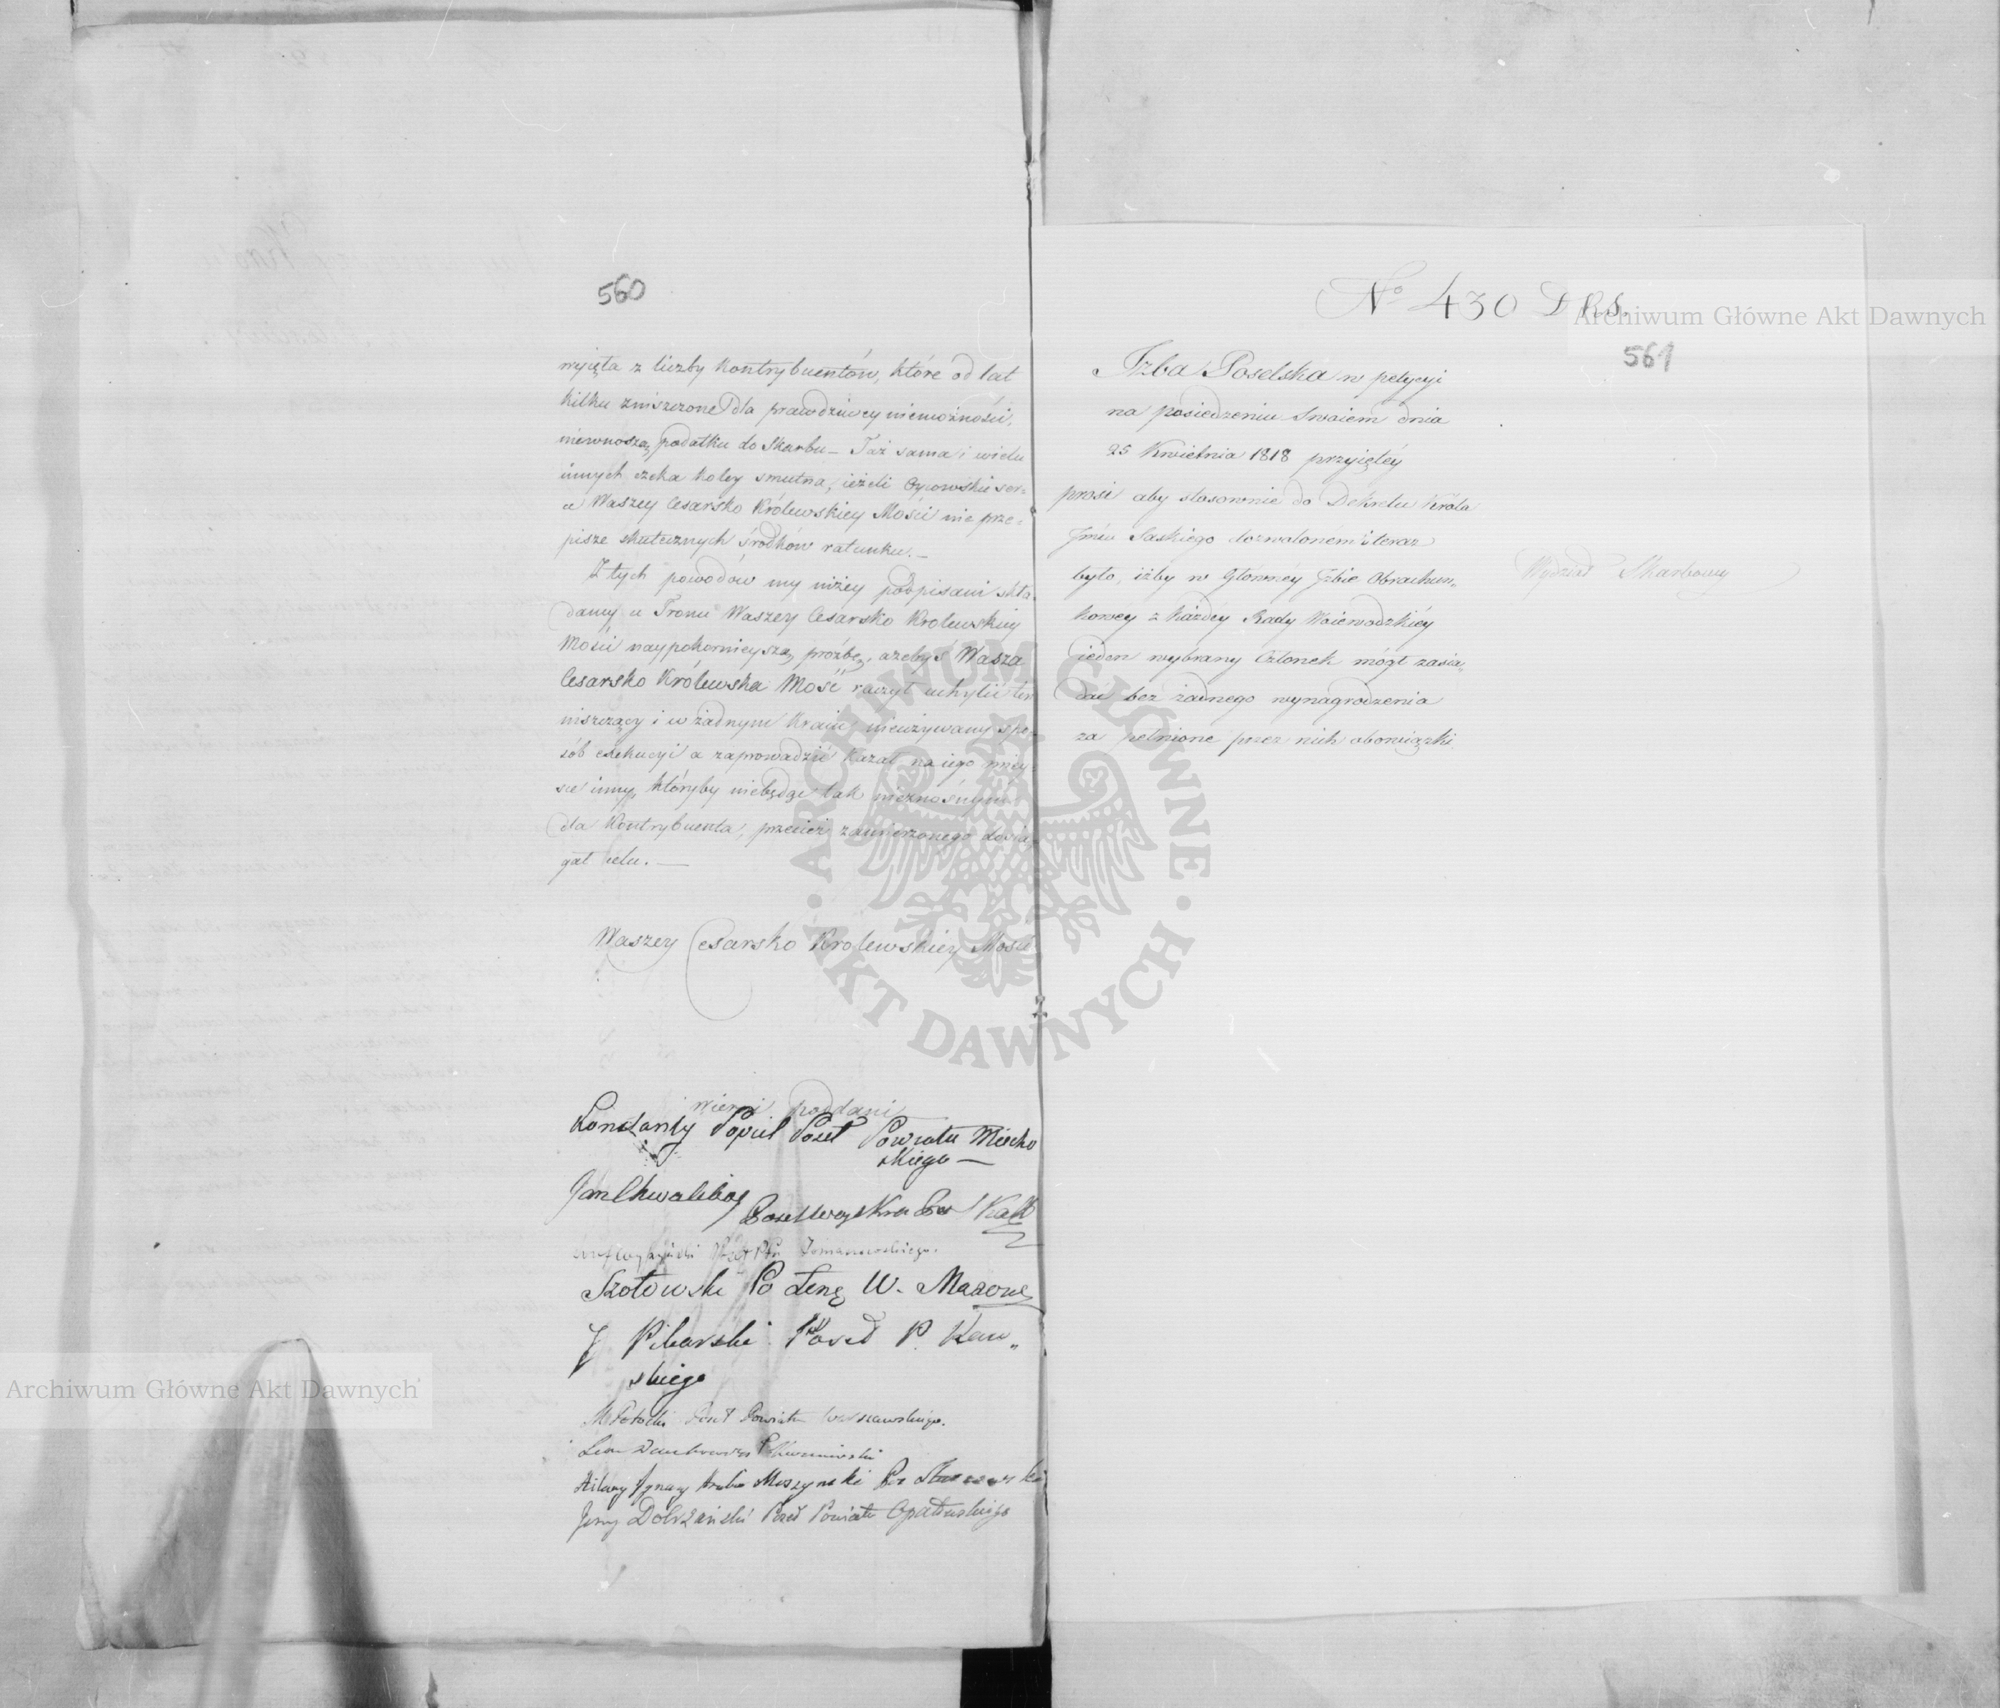 560
wyięta z liczby Kontrybuentów, które od lat
kilku zniszczone dla prawdziwey niemożności,
niewnoszą podatku do Skarbu — Taż sama i wielu
innych czeka koley smutna, ieżeli Oycowskie ser-
ce Waszey Cesarsko Królewskiey Mości nie prze-
pisze skutecznych środków ratunku. —
Z tych powodów my niżey podpisani skła-
damy u Tronu Waszey Cesarsko Krolewskiey
Mości naypokornieyszą prośbę, ażebyś Wasza
Cesarsko Królewska Mość raczył uchylić ten
niszczący i w żadnym Kraiu nieużywany spo-
sób exekucyi a zaprowadzić kazał na iego miey-
sce inny, któryby niebędąc tak nieznośnym
dla Kontrybuenta, przecież zamierzonego dosią-
gał celu. —
Waszey Cesarsko Krolewskiey Mości
wierni poddani
Konstanty Popiel Poseł Powiatu Miecho
skiego —
Jan Chwalibog
Poseł
Poseł
Szołowski Po Łenę W. Mazow
J Pikarski Poseł P. Raw„
skiego
M Potocki Poseł Powiatu Warszawskiego.
Leon
Hilary Ignacy Hrabia Moszyński
Jerzy Dobrzański Poseł Powiatu Opatowskiego
No 430 DRS.
561
Izba Poselska w petycyi
na posiedzeniu Swoiem dnia
25 Kwietnia 1818 przyiętéy
prosi aby stosownie do Dekretu Króla
Jmci Saskiego dozwolonem i teraz
było, iżby w Głównéy Izbie Obrachun„
kowey z każdéy Rady Woiewodzkiéy
ieden wybrany Członek mógł zasia„
dać bez żadnego wynagrodzenia
za pełnione przez nich obowiązki
Wydział Skarbowy
Archiwum Główne Akt Dawnych
Archiwum Główne Akt Dawnych
ARCHIWUM GŁÓWNE AKT DAWNYCH